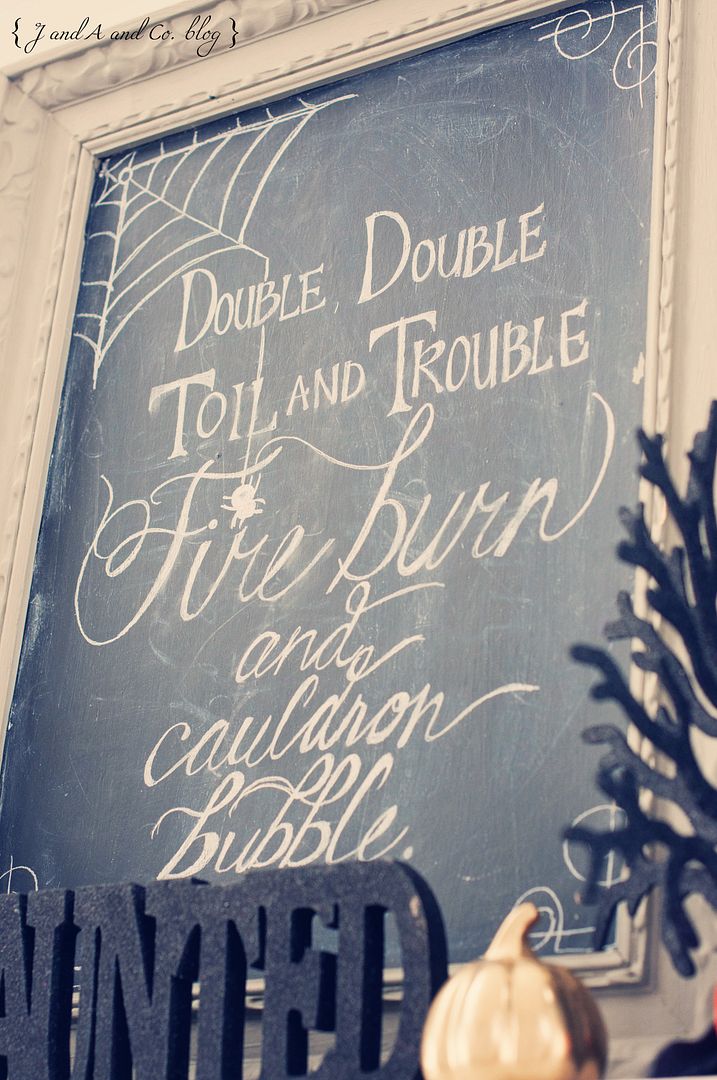 { J and A and Co. blog }
Double, Double
Toil and Trouble
Fire burn
and
cauldron
bubble.
AUNTED